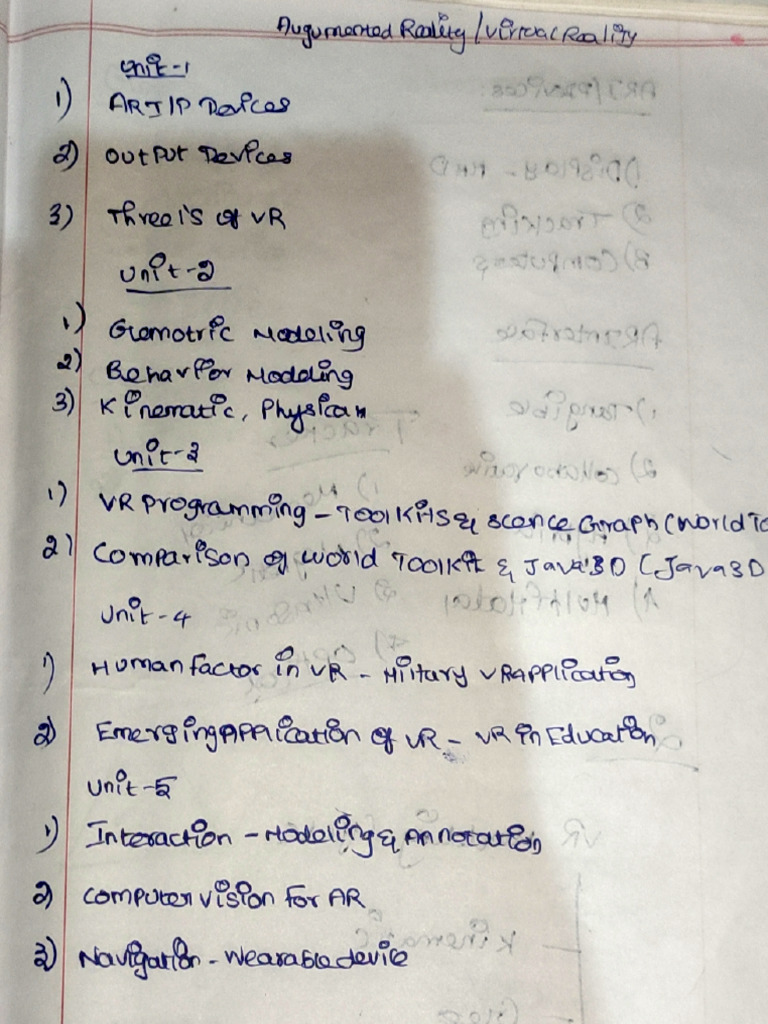 Augumented Reality / Virtual Reality
Unit-1
1) AR I/P Devices
2) Output Devices
3) Three I's of VR
Unit-2
1) Geomotric Modeling
2) Behavior Modeling
3) Kinematic, Physican
Unit-3
1) VR Programming - Toolkits & Scance Graph (World To
2) Comparison of World Toolkit & Java 3D (Java3D
Unit-4
1) Human factor in VR - Military VR Application
2) Emerging Application of VR - VR in Education
Unit-5
1) Interaction - Modeling & Annotation
2) Computer Vision for AR
3) Navigation - Wearable device